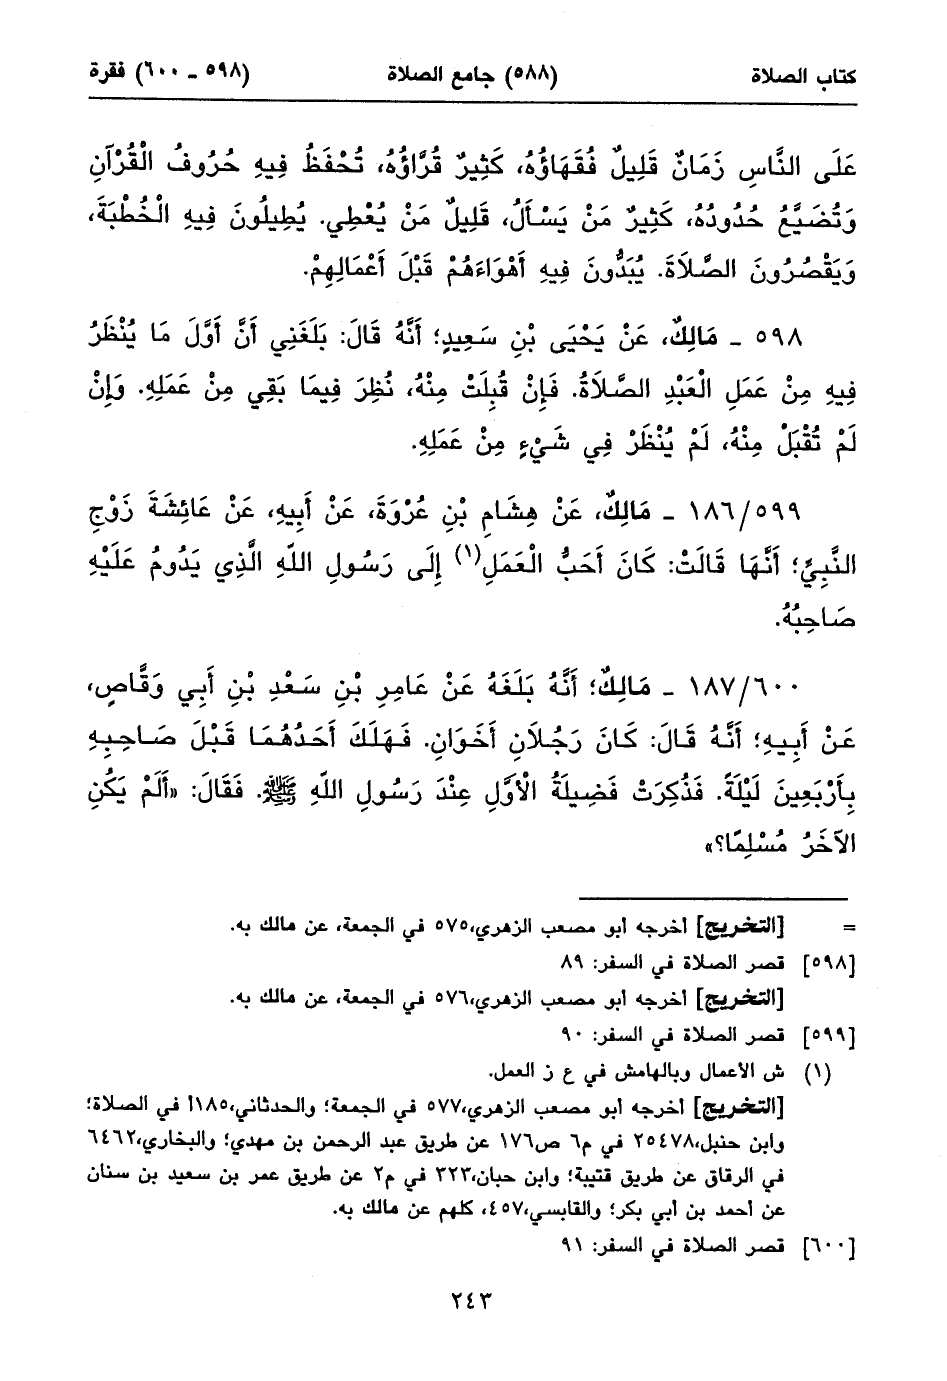 كتاب الصلاة (٥٨٨) جامع الصلاة (٥٩٨ - ٦٠٠) فقرة
عَلَى النَّاسِ زَمَانٌ قَلِيلٌ فُقَهَاؤُهُ، كَثِيرٌ قُرَّاؤُهُ، تُحْفَظُ فِيهِ حُرُوفُ الْقُرْآنِ
وَتُضَيَّعُ حُدُودُهُ، كَثِيرٌ مَنْ يَسْأَلُ، قَلِيلٌ مَنْ يُعْطِي. يُطِيلُونَ فِيهِ الْخُطْبَةَ،
وَيَقْصُرُونَ الصَّلَاةَ. يُبَدُّونَ فِيهِ أَهْوَاءَهُمْ قَبْلَ أَعْمَالِهِمْ.
٥٩٨ - مَالِكٌ، عَنْ يَحْيَى بْنِ سَعِيدٍ؛ أَنَّهُ قَالَ: بَلَغَنِي أَنَّ أَوَّلَ مَا يُنْظَرُ
فِيهِ مِنْ عَمَلِ الْعَبْدِ الصَّلَاةُ. فَإِنْ قُبِلَتْ مِنْهُ، نُظِرَ فِيمَا بَقِي مِنْ عَمَلِهِ. وَإِنْ
لَمْ تُقْبَلْ مِنْهُ، لَمْ يُنْظَرْ فِي شَيْءٍ مِنْ عَمَلِهِ.
١٨٦/٥٩٩ - مَالِكٌ، عَنْ هِشَامِ بْنِ عُرْوَةَ، عَنْ أَبِيهِ، عَنْ عَائِشَةَ زَوْجِ
النَّبِيِّ؛ أَنَّهَا قَالَتْ: كَانَ أَحَبُّ الْعَمَلِ(١) إِلَى رَسُولِ اللهِ الَّذِي يَدُومُ عَلَيْهِ
صَاحِبُهُ.
١٨٧/٦٠٠ - مَالِكٌ؛ أَنَّهُ بَلَغَهُ عَنْ عَامِرِ بْنِ سَعْدِ بْنِ أَبِي وَقَّاصٍ،
عَنْ أَبِيهِ؛ أَنَّهُ قَالَ: كَانَ رَجُلَانِ أَخَوَانِ. فَهَلَكَ أَحَدُهُمَا قَبْلَ صَاحِبِهِ
بِأَرْبَعِينَ لَيْلَةً. فَذُكِرَتْ فَضِيلَةُ الْأَوَّلِ عِنْدَ رَسُولِ اللهِ ﷺ. فَقَالَ: «أَلَمْ يَكُنِ
الآخَرُ مُسْلِمًا؟»
= [التخريج] أخرجه أبو مصعب الزهري،٥٧٥ في الجمعة، عن مالك به.
[٥٩٨] قصر الصلاة في السفر: ٨٩
[التخريج] أخرجه أبو مصعب الزهري،٥٧٦ في الجمعة، عن مالك به.
[٥٩٩] قصر الصلاة في السفر: ٩٠
(١) ش الأعمال وبالهامش في ع ز العمل.
[التخريج] أخرجه أبو مصعب الزهري،٥٧٧ في الجمعة؛ والحدثاني،١٨٥أ في الصلاة؛
وابن حنبل،٢٥٤٧٨ في م٦ ص١٧٦ عن طريق عبد الرحمن بن مهدي؛ والبخاري،٦٤٦٢
في الرقاق عن طريق قتيبة؛ وابن حبان،٣٢٣ في م٢ عن طريق عمر بن سعيد بن سنان
عن أحمد بن أبي بكر؛ والقابسي،٤٥٧، كلهم عن مالك به.
[٦٠٠] قصر الصلاة في السفر: ٩١
٢٤٣